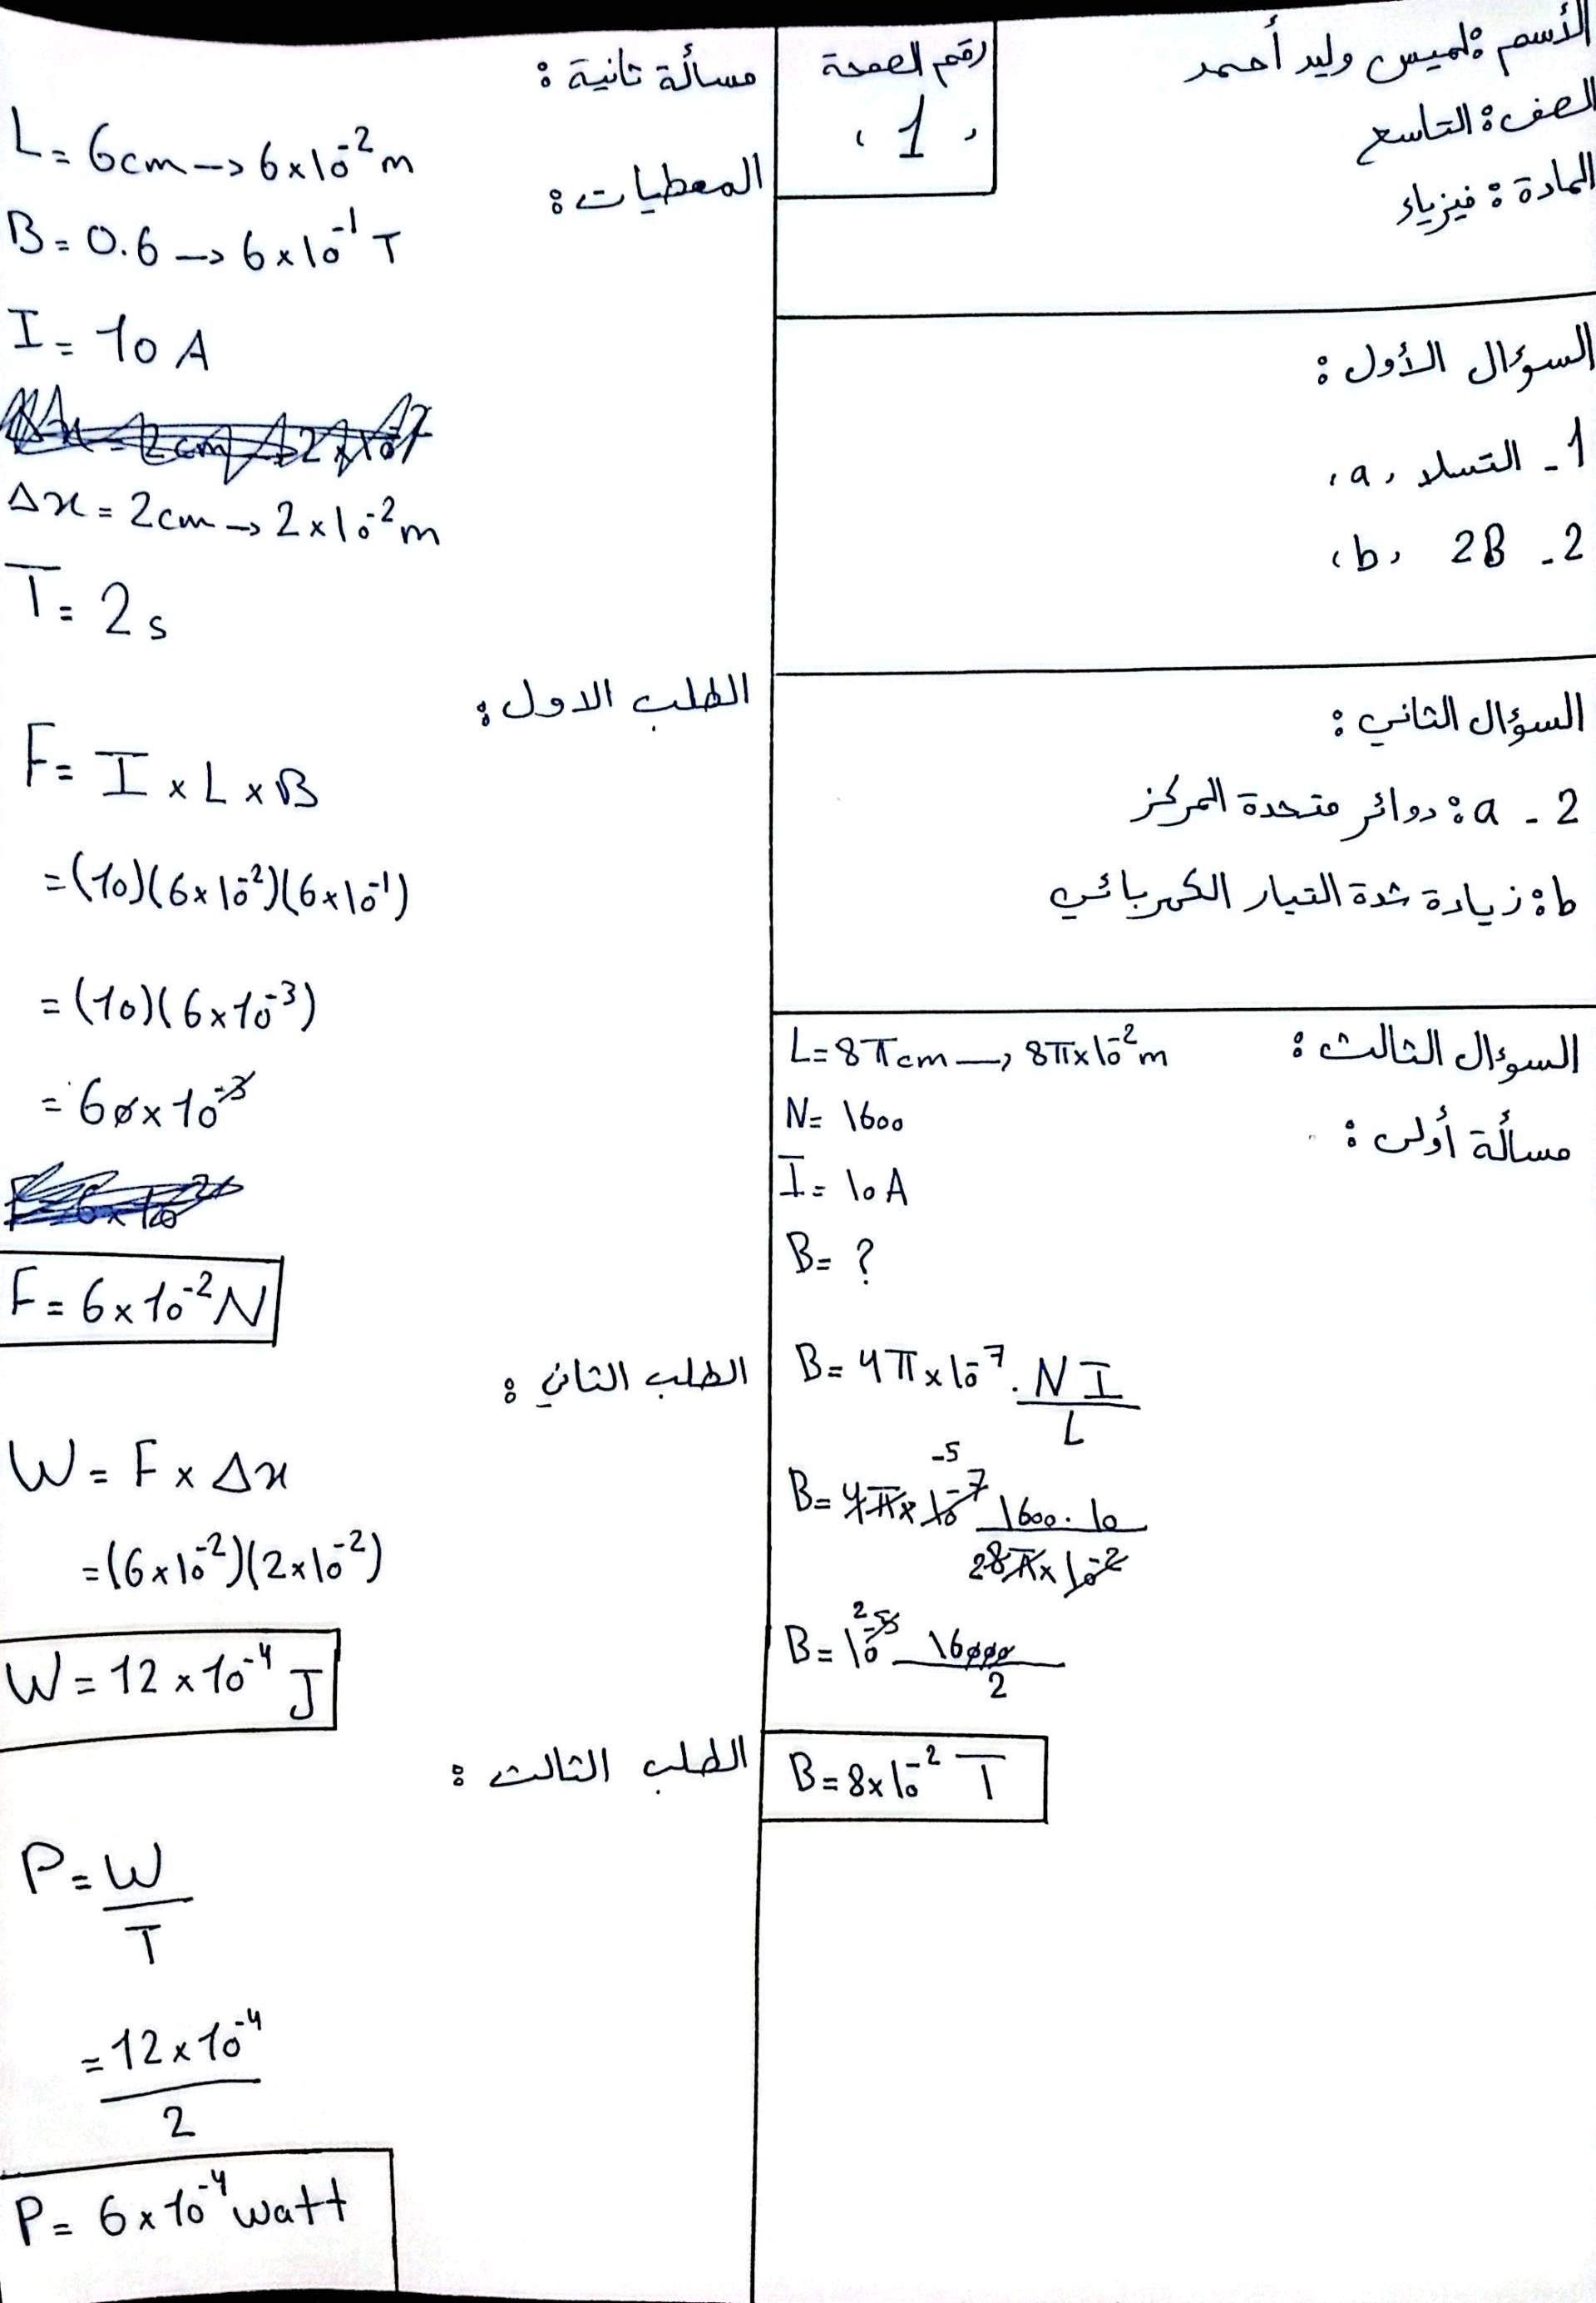 الأسم : لميس وليد أحمد
الصف : التاسع
المادة : فيزياء
رقم الصفحة
(1)
السؤال الأول :
1 - التسلا (a)
2 - 2B (b)
السؤال الثاني :
2 - a : دوائر متحدة المركز
b : زيادة شدة التيار الكهربائي
السؤال الثالث :
مسألة أولى :
L = 8π cm → 8π×10⁻² m
N = 1600
I = 10 A
B = ?
B = 4π×10⁻⁷ . NI / L
B = 4π×10⁻⁷ ⁻⁵ 1600 . 10 / 2 8π×10⁻²
B = 10⁻⁵ ² 16000 / 2
B = 8×10⁻² T
مسألة ثانية :
المعطيات :
L = 6cm → 6×10⁻² m
B = 0.6 → 6×10⁻¹ T
I = 10 A
Δx = 2cm → 2×10⁻² m
T = 2s
الطلب الاول :
F = I × L × B
= (10)(6×10⁻²)(6×10⁻¹)
= (10)(6×10⁻³)
= 60×10⁻³
F = 6×10⁻² N
الطلب الثاني :
W = F × Δx
= (6×10⁻²)(2×10⁻²)
W = 12×10⁻⁴ J
الطلب الثالث :
P = W / T
= 12×10⁻⁴ / 2
P = 6×10⁻⁴ watt